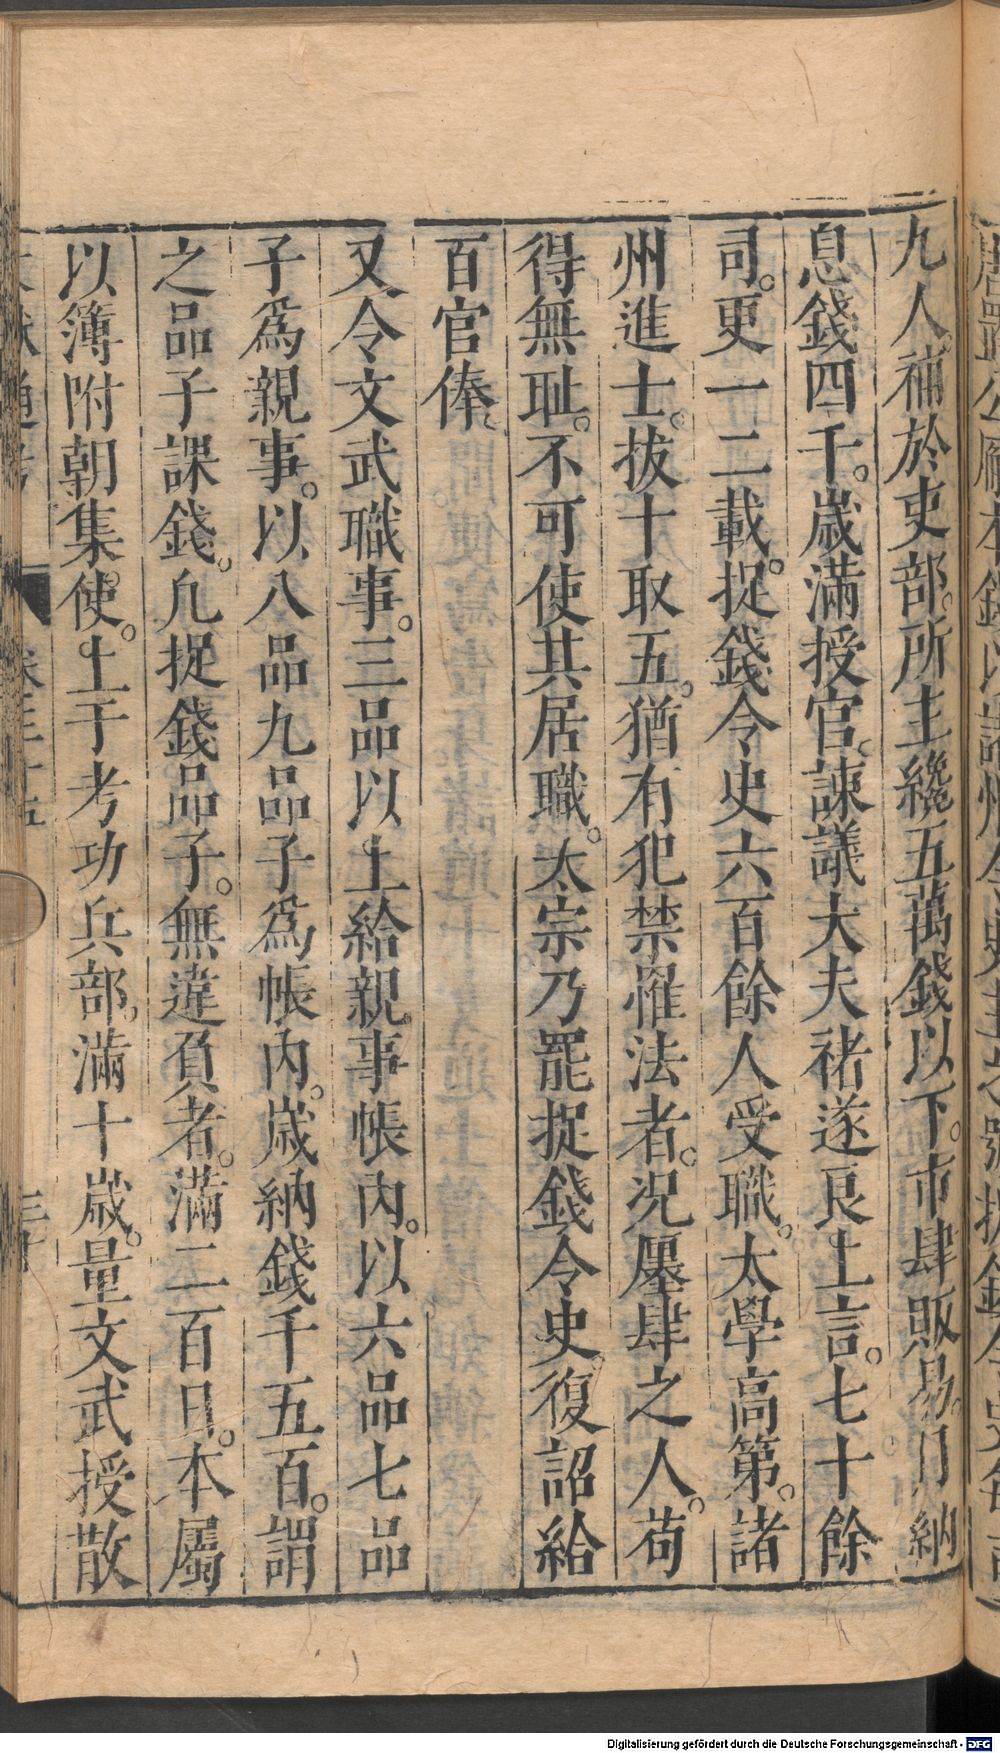 九人。補於吏部。所主纔五萬錢以下。市肆販易。月納
息錢四千。歲滿授官。諫議大夫禇遂良上言。七十餘
司。更一二載。捉錢令史六百餘人受職。太學高第。諸
州進士。拔十取五。猶有犯禁罹法者。况廛肆之人。苟
得無耻。不可使其居職。太宗乃罷捉錢令史。復詔給
百官俸。
又令文武職事。三品以上給親事帳內。以六品七品
子爲親事。以八品九品子爲帳內。歲納錢千五百。謂
之品子課錢。凢捉錢品子。無違負者。滿二百日。本屬
以簿附朝集使。上于考功兵部。滿十歲。量文武授散
Digitalisierung gefördert durch die Deutsche Forschungsgemeinschaft - DFG